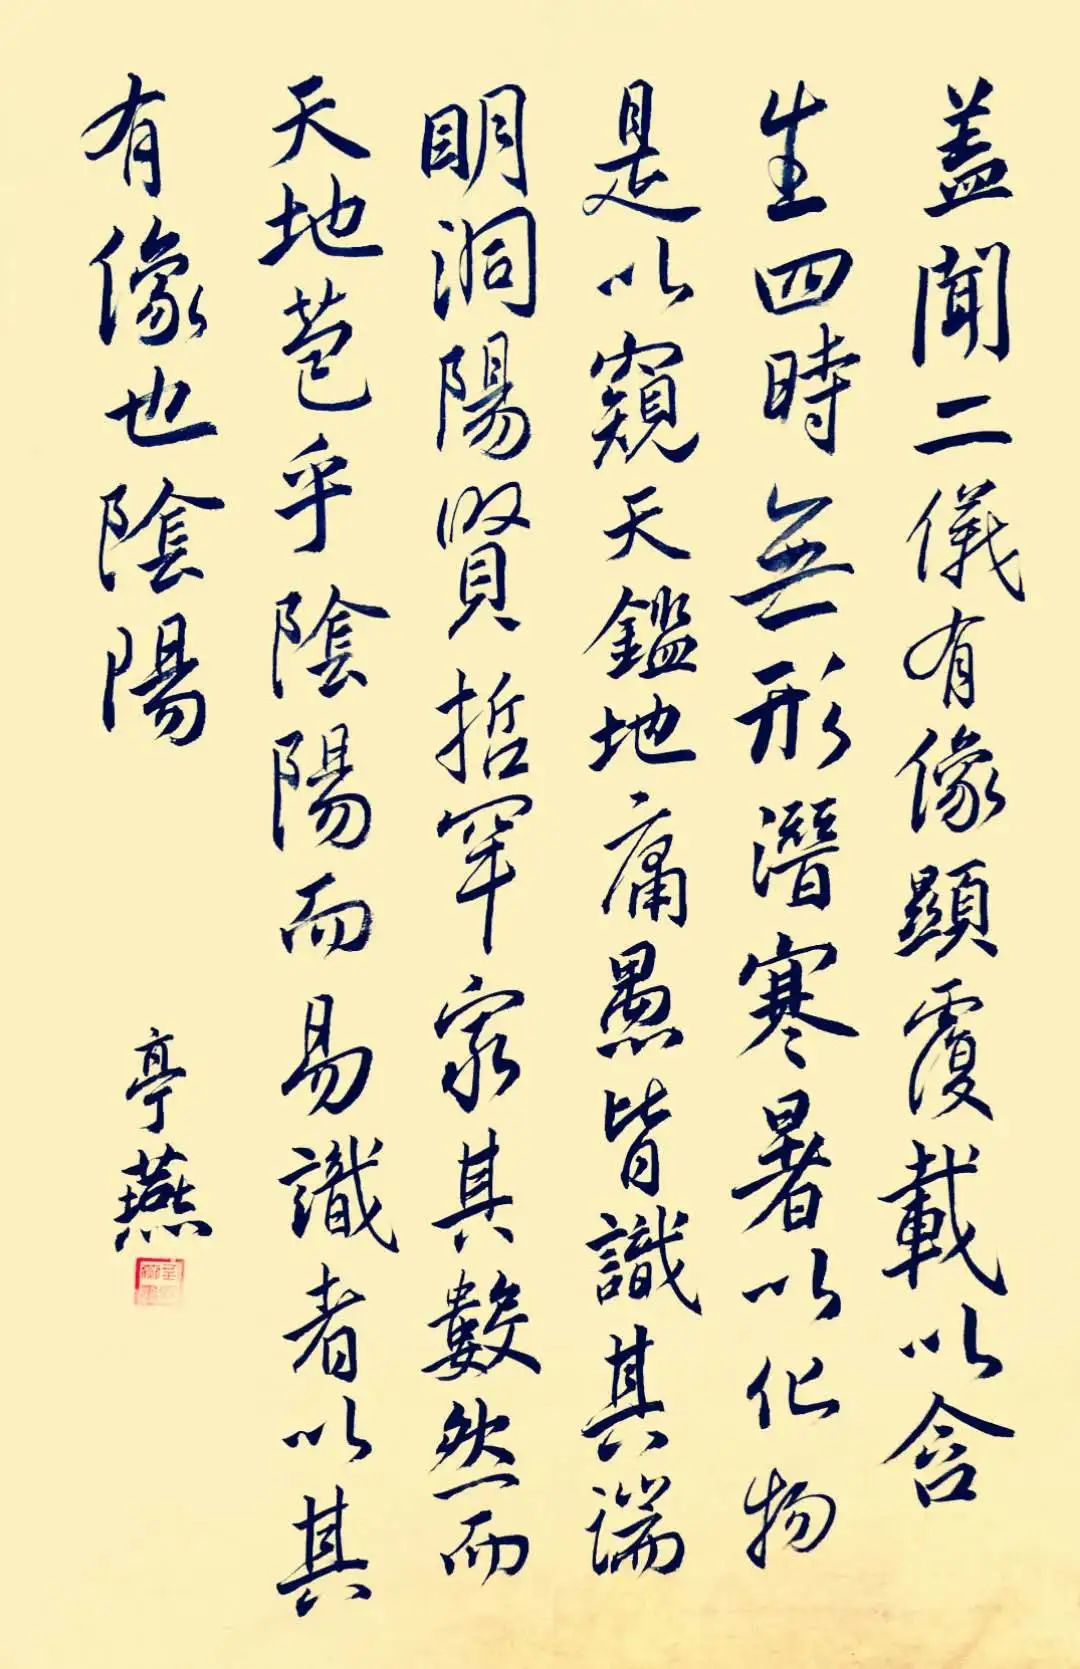 蓋聞二儀有像顯覆載以含
生四時無形潛寒暑以化物
是以窺天鑑地庸愚皆識其端
明洞陽賢哲罕窮其數然而
天地苞乎陰陽而易識者以其
有像也陰陽
亭燕